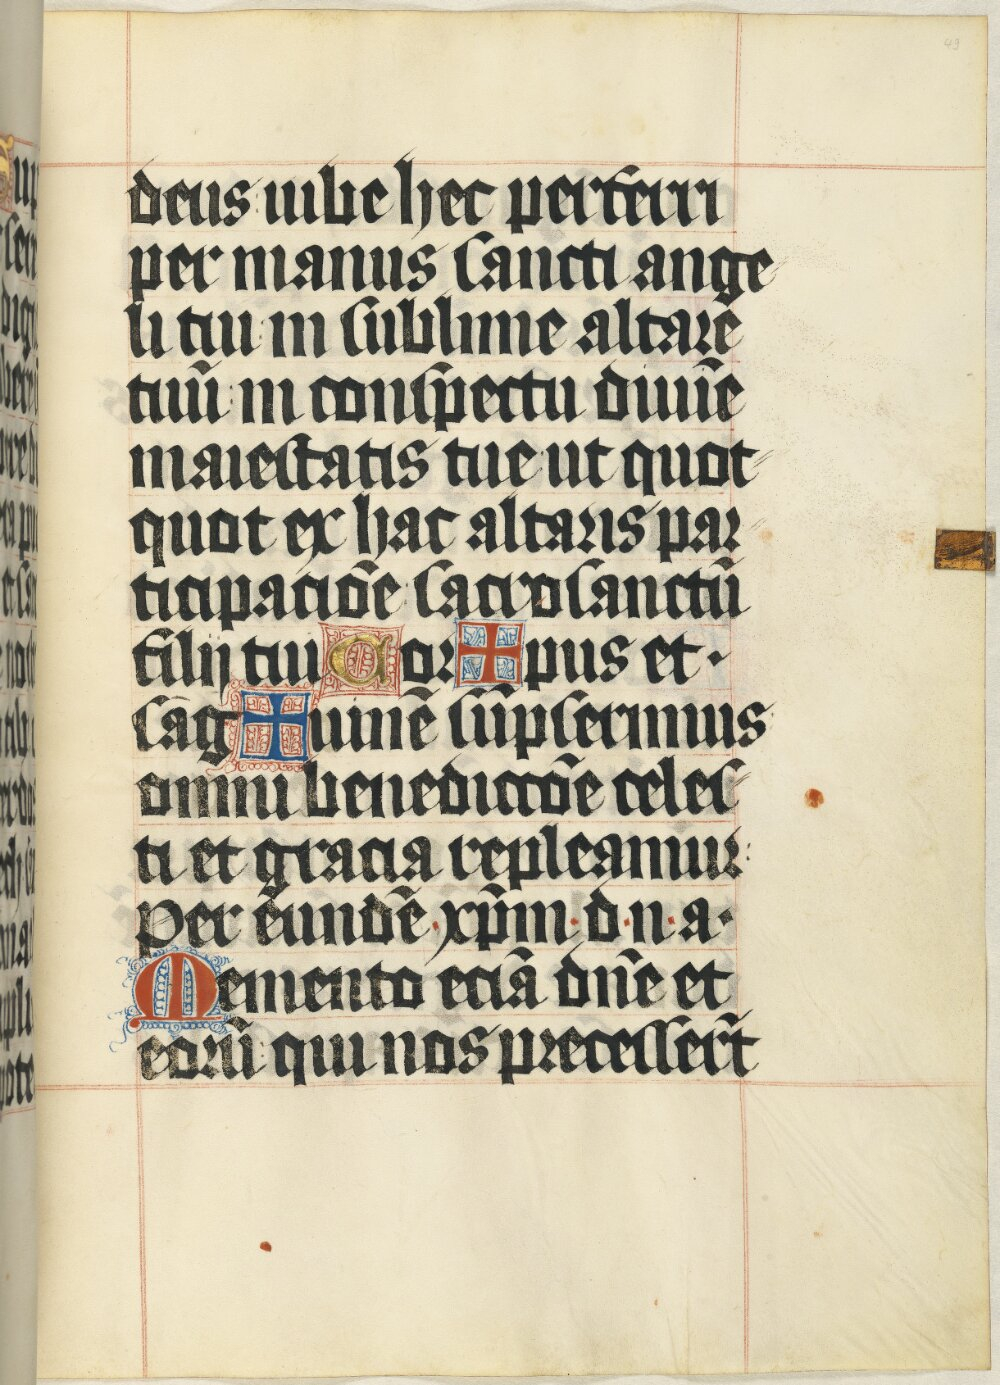 49
deus iube hec perferri
per manus sancti ange
li tui in sublime altare
tuū in conspectu diuīe
maiestatis tue ut quot
quot ex hac altaris par
ticipaciōe sacrosanctū
filij tui Cor✠pus et ·
sāg✠uinē sūpserimus
omni benedictōe celes
ti et gracia repleamur:
Per eundē · xp̄m · d · n · a ·
Memento eciā dn̄e et
eorū qui nos precesser̄t